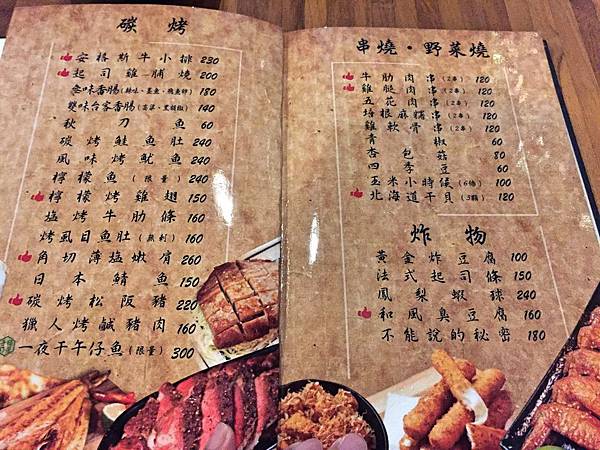 碳烤
安格斯牛小排 230
起司雞脯燒 200
參味香腸(辣味、墨魚、飛魚卵) 180
雙味台客香腸(高粱、黑胡椒) 140
秋刀魚 60
碳烤鮭魚肚 240
風味烤魷魚 240
檸檬魚(限量) 240
檸檬烤雞翅 150
塩烤牛肋條 160
烤虱目魚肚(無刺) 160
角切薄塩嫩肩 260
日本鯖魚 150
碳烤松阪豬 220
獵人烤鹹豬肉 160
一夜干午仔魚(限量) 300
串燒・野菜燒
牛肋肉串(2串) 120
雞腿肉串(2串) 120
五花肉串(2串) 120
培根麻糬串(2串) 120
雞軟骨串(2串) 120
青椒 60
杏包菇 80
四季豆 60
玉米小時候(6條) 100
北海道干貝(3顆) 120
炸物
黃金炸豆腐 100
法式起司條 150
鳳梨蝦球 240
和風臭豆腐 160
不能說的秘密 180